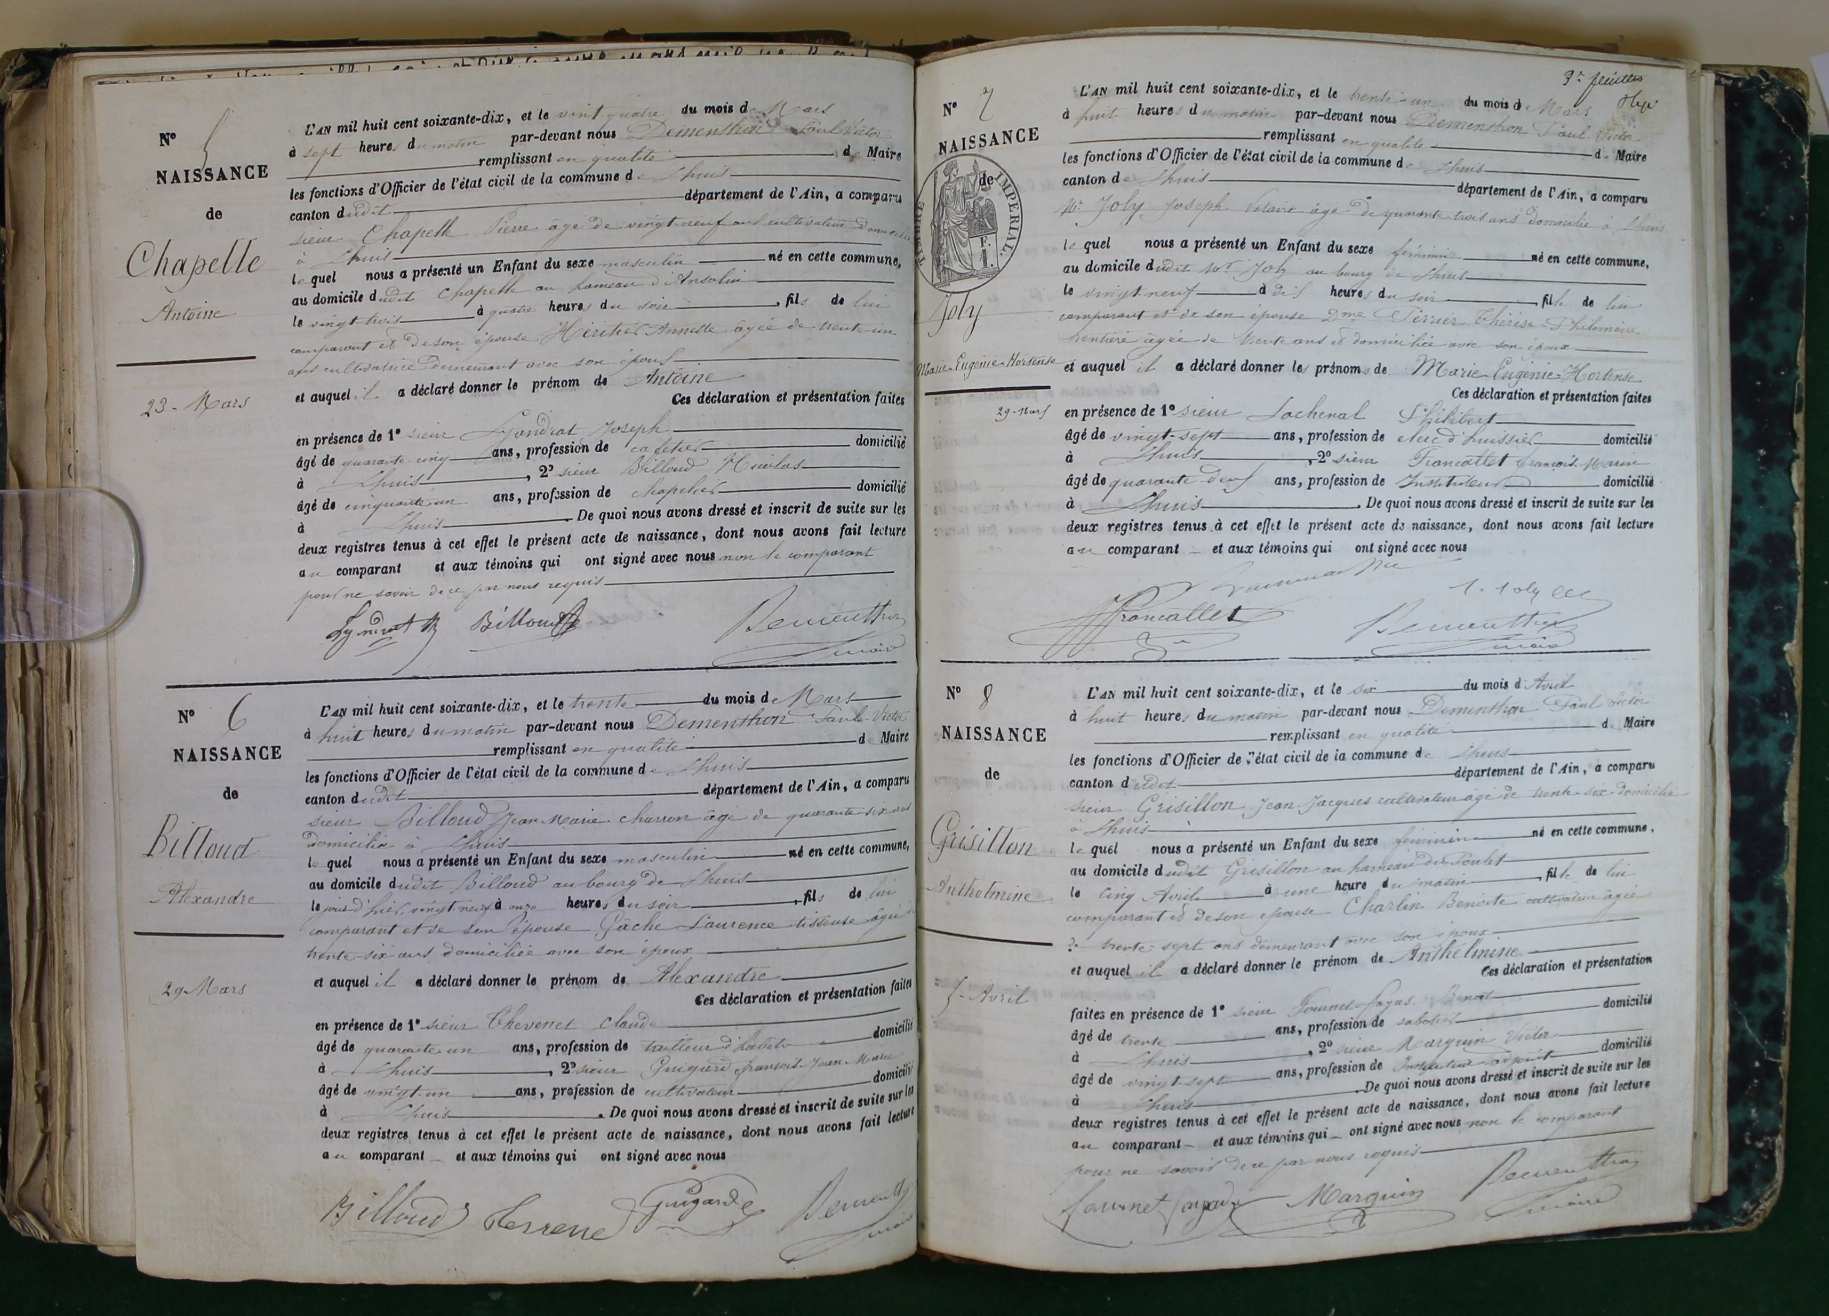 N° 5
NAISSANCE
de
Chapelle
Antoine
23 - Mars
L'AN mil huit cent soixante-dix, et le vingt quatre du mois de Mars
à sept heures du matin par-devant nous Dementhon Paul Victor
remplissant en qualité de Maire
les fonctions d'Officier de l'état civil de la commune de Lhuis
canton dudit département de l'Ain, a comparu
sieur Chapelle Pierre âgé de vingt neuf ans cultivateur domicilié
à Lhuis
lequel nous a présenté un Enfant du sexe masculin né en cette commune,
au domicile dudit Chapelle au hameau d'Ansolin
le vingt trois à quatre heures du soir, fils de lui
comparant et de son épouse Annette âgée de trente un
ans cultivatrice demeurant avec son époux
et auquel il a déclaré donner le prénom de Antoine
Ces déclaration et présentation faites
en présence de 1° sieur Joseph
âgé de quarante cinq ans, profession de cafetier domicilié
à Lhuis, 2° sieur Billoud Nicolas
âgé de cinquante un ans, profession de chapelier domicilié
à Lhuis. De quoi nous avons dressé et inscrit de suite sur les
deux registres tenus à cet effet le présent acte de naissance, dont nous avons fait lecture
au comparant et aux témoins qui ont signé avec nous non le comparant
pour ne savoir de ce par nous requis
Billoud Dementhon
maire
N° 6
NAISSANCE
de
Billoud
Alexandre
29 Mars
L'AN mil huit cent soixante-dix, et le trente du mois de Mars
à huit heures du matin par-devant nous Dementhon Paul Victor
remplissant en qualité de Maire
les fonctions d'Officier de l'état civil de la commune de Lhuis
canton dudit département de l'Ain, a comparu
sieur Billoud Jean Marie charron âgé de quarante six ans
domicilié à Lhuis
lequel nous a présenté un Enfant du sexe masculin né en cette commune,
au domicile dudit Billoud au bourg de Lhuis
le jour d'hier vingt neuf à onze heures du soir, fils de lui
comparant et de son épouse Gâche Laurence tisseuse âgée
trente-six ans domiciliée avec son époux
et auquel il a déclaré donner le prénom de Alexandre
Ces déclaration et présentation faites
en présence de 1° sieur Claude
âgé de quarante un ans, profession de tailleur d'habits domicilié
à Lhuis, 2° sieur François Jean Marie
âgé de vingt un ans, profession de cultivateur domicilié
à Lhuis. De quoi nous avons dressé et inscrit de suite sur les
deux registres tenus à cet effet le présent acte de naissance, dont nous avons fait lecture
au comparant et aux témoins qui ont signé avec nous
Billoud Dementhon
maire
3e feuillet
N° 7
NAISSANCE
de
TIMBRE IMPERIAL.
Joly
Marie-Eugénie-Hortense
29-Mars
L'AN mil huit cent soixante-dix, et le trente-un du mois de Mars
à huit heures du matin par-devant nous Dementhon Paul Victor
remplissant en qualité de Maire
les fonctions d'Officier de l'état civil de la commune de Lhuis
canton de Lhuis département de l'Ain, a comparu
Mr Joly Joseph Notaire âgé de quarante trois ans domicilié à Lhuis
lequel nous a présenté un Enfant du sexe féminin né en cette commune,
au domicile dudit Mr Joly au bourg de Lhuis
le vingt neuf à dix heures du soir, fille de lui
comparant et de son épouse Dme Perrier Thérèse Philomène
rentière âgée de trente ans et domiciliée avec son époux
et auquel il a déclaré donner les prénoms de Marie-Eugénie-Hortense
Ces déclaration et présentation faites
en présence de 1° sieur Lachenal Philibert
âgé de vingt-sept ans, profession de clerc d'huissier domicilié
à Lhuis, 2° sieur Francallet François Marie
âgé de quarante deux ans, profession de Instituteur domicilié
à Lhuis. De quoi nous avons dressé et inscrit de suite sur les
deux registres tenus à cet effet le présent acte de naissance, dont nous avons fait lecture
au comparant et aux témoins qui ont signé avec nous
J. Joly
Francallet Dementhon
maire
N° 8
NAISSANCE
de
Grisillon
Anthelmine
5 - Avril
L'AN mil huit cent soixante-dix, et le six du mois d'Avril
à huit heures du matin par-devant nous Dementhon Paul Victor
remplissant en qualité de Maire
les fonctions d'Officier de l'état civil de la commune de Lhuis
canton dudit département de l'Ain, a comparu
sieur Grisillon Jean-Jacques cultivateur âgé de trente-six domicilié
à Lhuis
lequel nous a présenté un Enfant du sexe féminin né en cette commune,
au domicile dudit Grisillon au hameau du
le cinq Avril à une heure du matin, fille de lui
comparant et de son épouse Charlin Benoite cultivatrice âgée
de trente-sept ans demeurant avec son époux
et auquel il a déclaré donner le prénom de Anthelmine
Ces déclaration et présentation
faites en présence de 1° sieur Fournet-Fayas Benoit
âgé de trente ans, profession de sabotier domicilié
à Lhuis, 2° sieur Marguin Victor
âgé de vingt sept ans, profession de Instituteur adjoint domicilié
à Lhuis. De quoi nous avons dressé et inscrit de suite sur les
deux registres tenus à cet effet le présent acte de naissance, dont nous avons fait lecture
au comparant et aux témoins qui ont signé avec nous non le comparant
pour ne savoir de ce par nous requis
Fournet Marguin Dementhon
maire